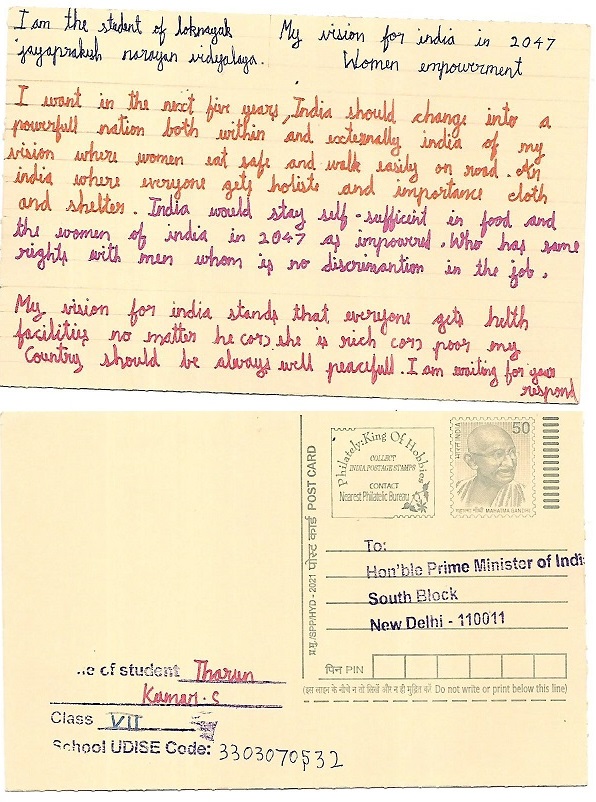 I am the student of loknayak
jayaprakash narayan vidyalaya.
My vision for india in 2047
Women empowerment
I want in the next five years, India should change into a
powerfull nation both within and externally india of my
vision where women eat safe and walk easily on road. An
india where everyone gets holiste and importance cloth
and shelter. India would stay self-sufficent in food and
the women of india in 2047 as impowered. Who has same
rights with men whom is no discremantion in the job.
My vision for india stands that everyone gets helth
facilities no matter he (or) she is rich (or) poor my
Country should be always well peacefull. I am waiting for your
respond
Philately:King Of Hobbies
COLLECT
INDIA POSTAGE STAMPS
CONTACT
Nearest Philatelic Bureau
भारत INDIA
50
महात्मा गाँधी MAHATMA GANDHI
प्र.मु./SPP/HYD - 2021 पोस्ट कार्ड POST CARD
To:
Hon'ble Prime Minister of Indi
South Block
New Delhi - 110011
पिन PIN
(इस लाइन के नीचे न तो लिखें और न ही मुद्रित करें Do not write or print below this line)
e of student Tharun
Kumar.S
Class VII
School UDISE Code: 3303070532